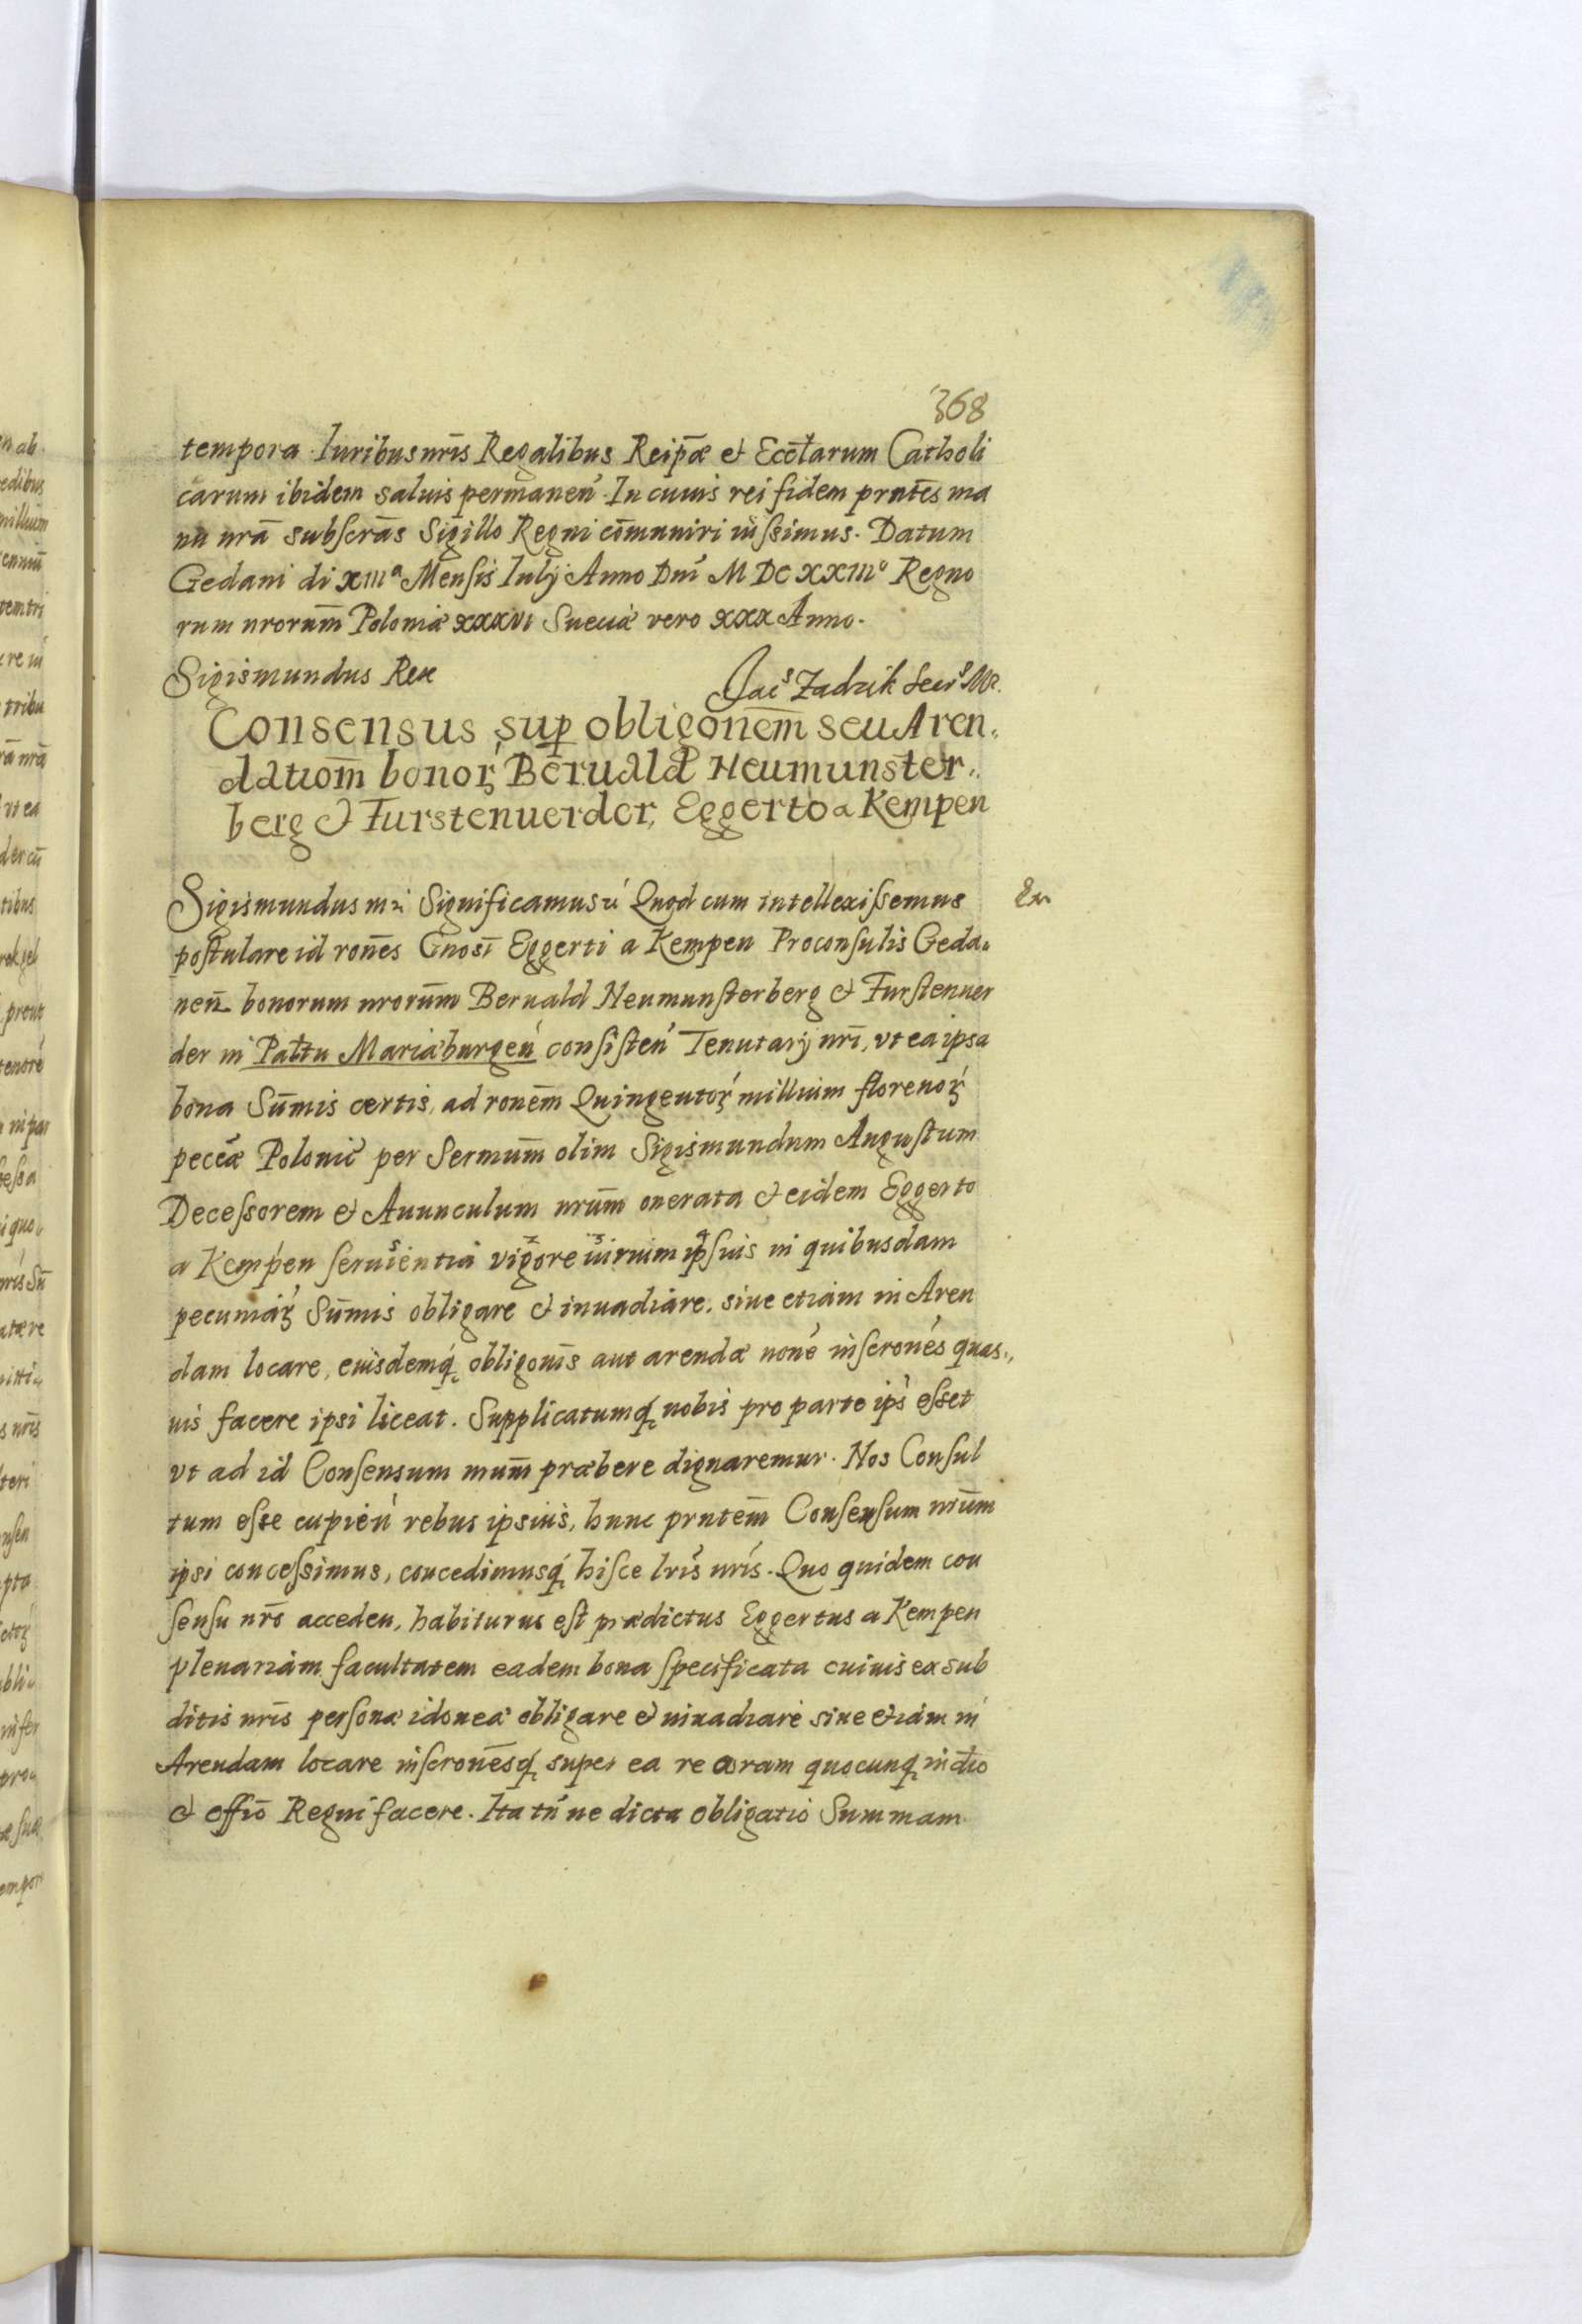 368
tempora Iuribus nrīs Regalibus Reipæ et Eccłarum Catholi
carum ibidem saluis permanen. In cuius rei fidem prntēs ma
nu nrā subscrās Sigillo Regni cōmuniri iussimus. Datum
Gedani di XIIIa Mensis Iulij Anno Dnī M DC XXIIIo Regno
rum nrorūm Poloniæ XXXVI Sueciæ vero XXX Anno.
Sigismundus Rex Jacs Zadzik Secrs Mr.
Consensus sup obligonēm seu Aren„
datiom̄ bonor Beruald Neumunster„
berg et Furstenuerder, Eggerto a Kempen
Sigismundus Significamus Quod cum intellexissemus
Ex
postulare id ronēs Gnosī Eggerti a Kempen Proconsulis Geda„
nen bonorum nrorūm Beruald Neumunsterberg et Furstenuer
der in Pałtu Mariæburgen consisten Tenutarij nrī, vt ea ipsa
bona Sūmis certis, ad ronēm Quingentor millium florenor
peceæ Polonic per Sermūm olim Sigismundum Augustum
Decessorem et Auunculum nrūm onerata et eidem Eggerto
a Kempen seruientia vigore iurium ipsius in quibusdam
pecuniar Sūmis obligare et inuadiare, siue etiam in Aren
dam locare, eiusdemq obligonīs aut arendæ noné inscronés quas„
uis facere ipsi liceat. Supplicatumq nobis pro parte ips esset
vt ad id Consensum nrūm præbere dignaremur. Nos Consul
tum esse cupien rebus ipsius, hunc prntēm Consensum nrūm
ipsi concessimus, concedimusq hisce lrīs nrīs. Quo quidem con
sensu nrō acceden, habiturus est prædictus Eggertus a Kempen
plenariam facultatem eadem bona specificata cuiuis ex sub
ditis nrīs personæ idoneæ obligare et inuadiare siue etiam in
Arendam locare inscronēsq super ea re coram quocunq indio
et offīo Regni facere. Ita tn ne dicta obligatio Summam